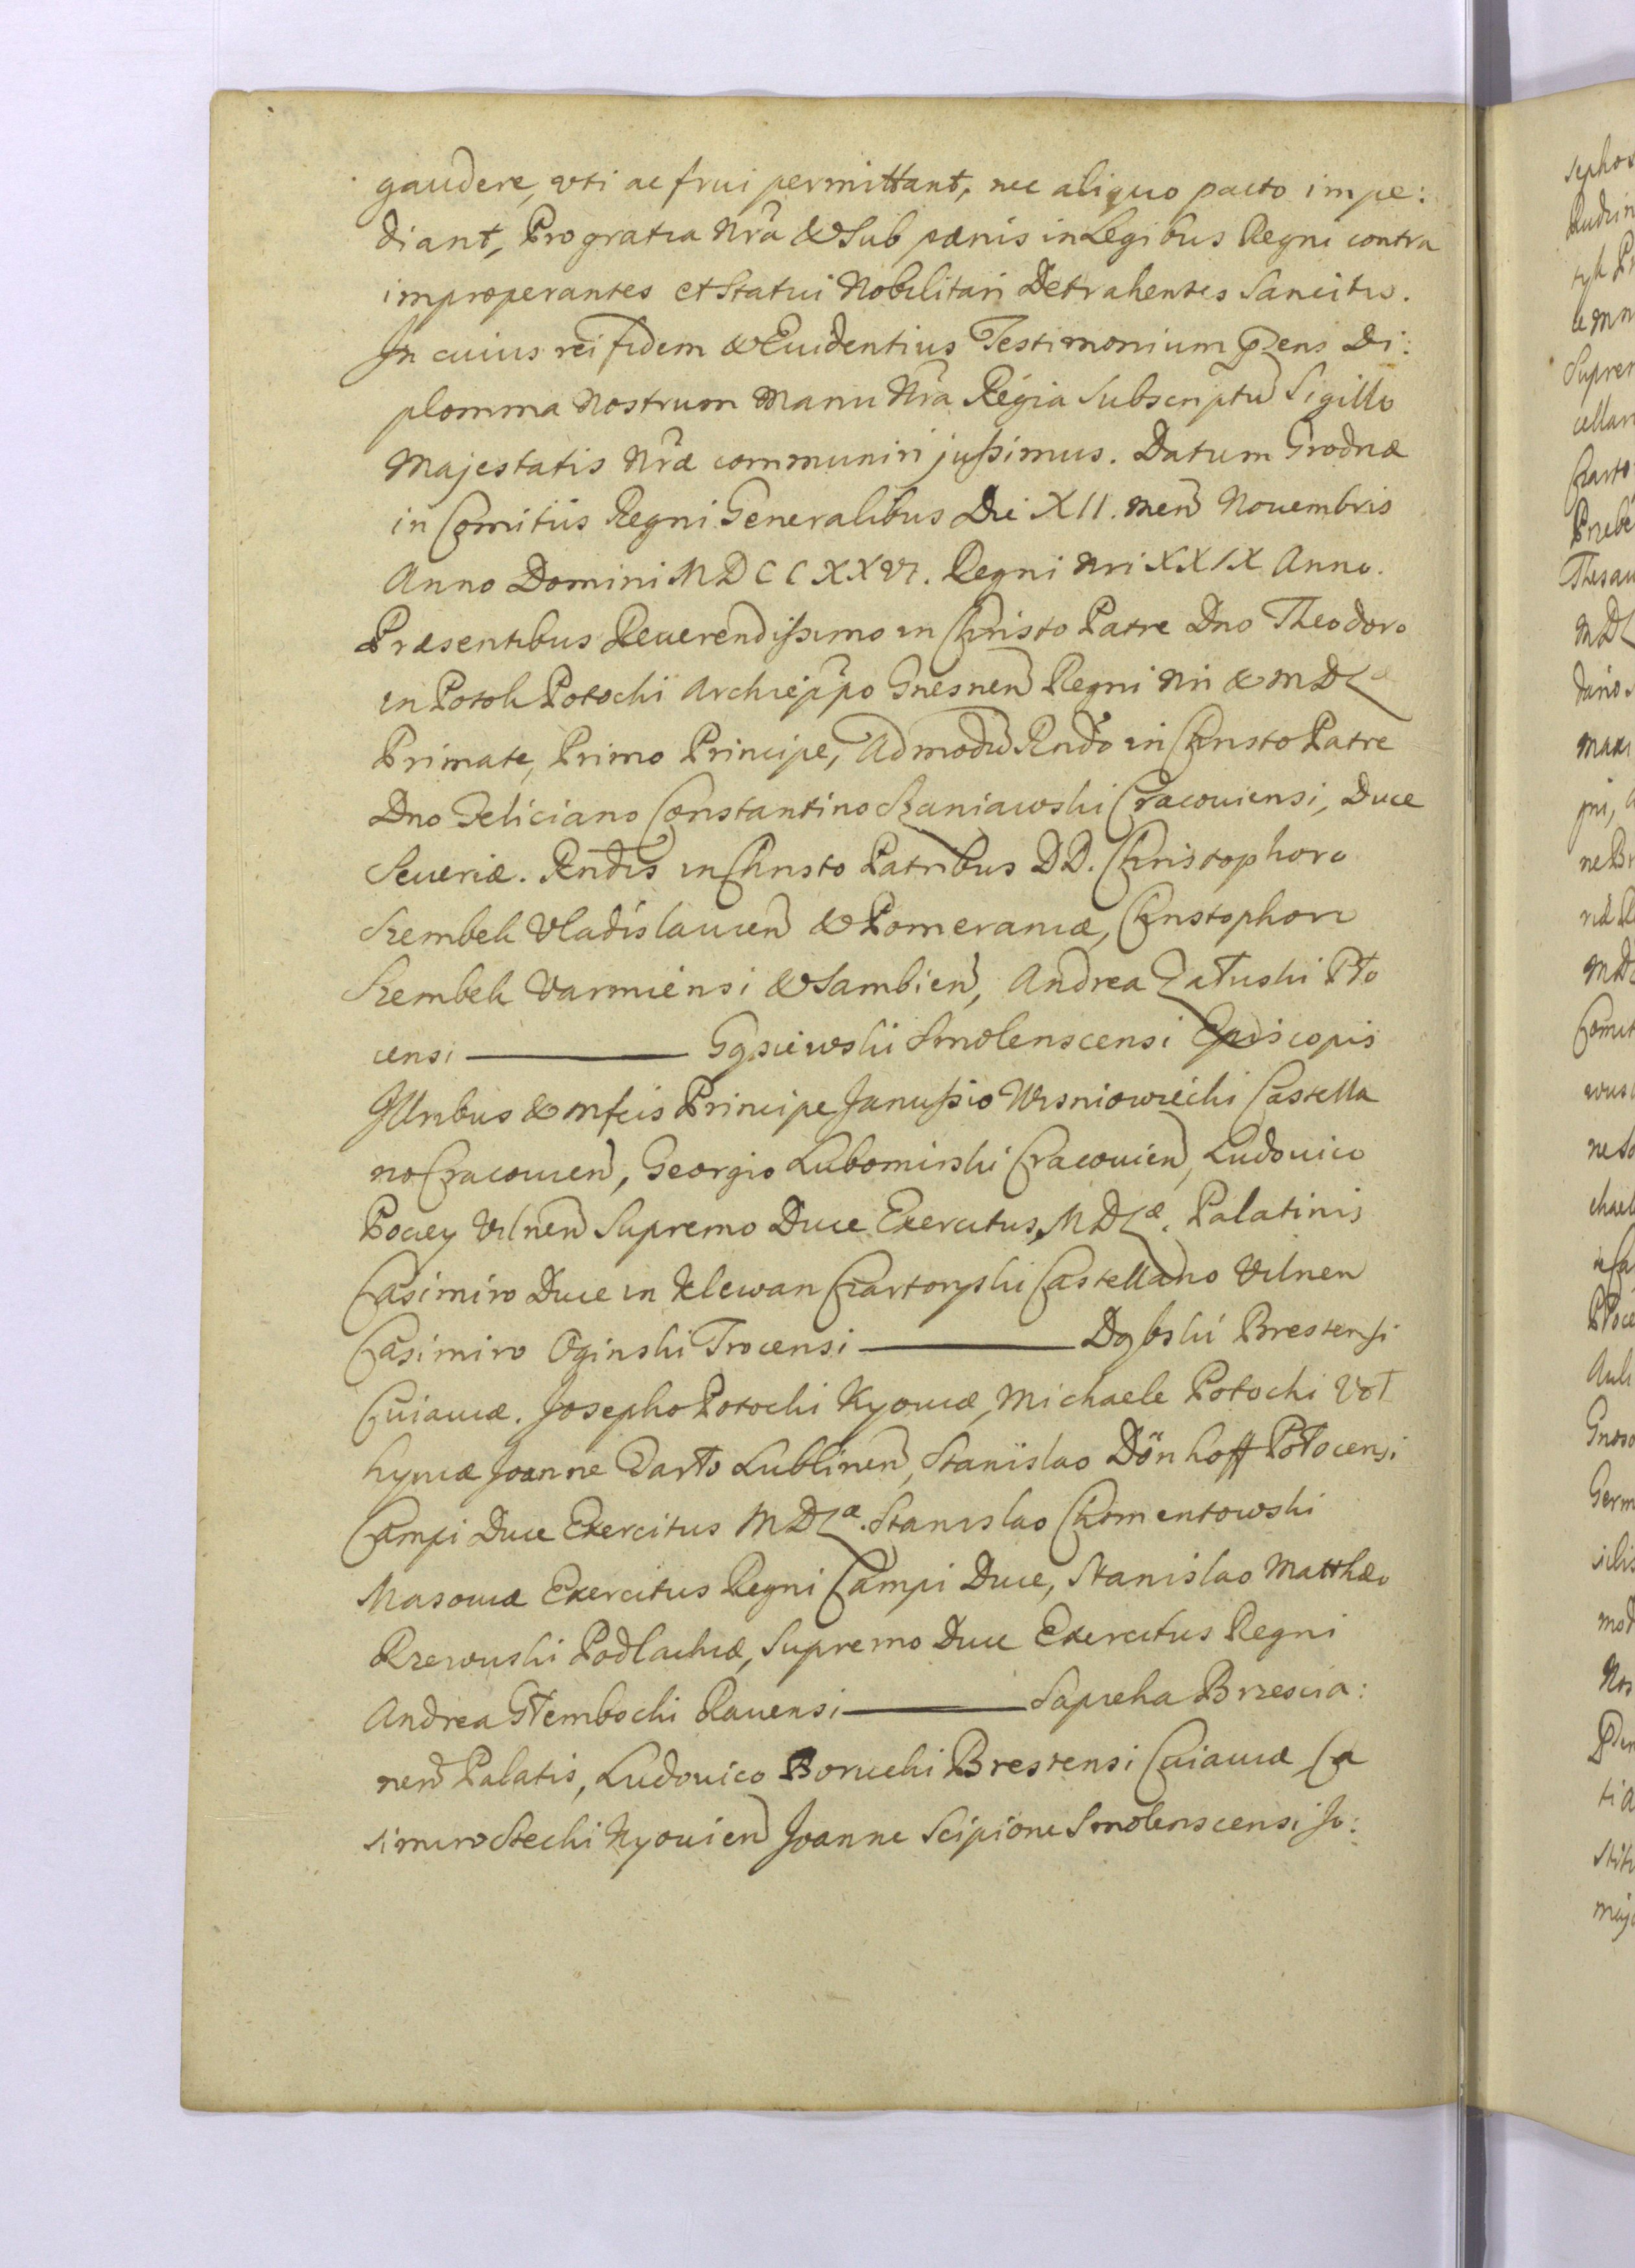 gaudere, uti ac frui permittant, nec aliquo pacto impe:
diant, Pro gratia Nrã & Sub pænis in Legibus Regni contra
improperantes et Statui Nobilitari Detrahentes Sancitis.
In cuius rei fidem & Euidentius Testimonium pñzens Di:
plomma Nostrum Manu Nrã Regia Subscriptũ Sigillo
Majestatis Nræ communiri jussimus. Datum Grodnæ
in Comitiis Regni Generalibus Die XII. men̄ Nouembris
Anno Domini MDCCXXVI. Regni Nri XXIX Anno.
Præsentibus Reuerendissimo in Christo Patre Dno Theodoro
in Potok Potocki Archieppo Gnesnen̄ Regni Nri & MDLæ
Primate, Primo Principe, Admodũ Rndo in Christo Patre
Dno Feliciano Constantino Szaniawski Cracouiensi, Duce
Seueriæ. Rndis in Christo Patribus DD. Christophoro
Szembek Vladislauien̄ & Pomeraniæ, Christophoro
Szembek Varmiensi & Sambien̄, Andrea Załuski Pło
censi ——— Gąsiewski Smolenscensi Episcopis
Illribus & Mfcis Principe Janussio Wisniowiecki Castella
no Cracouien̄, Georgio Lubomirski Cracouien̄, Ludouico
Pociey Vilnen̄ Supremo Duce Exercitus MDLæ. Palatinis
Casimiro Duce in Klewan Czartoryski Castellano Vilnen
Casimiro Oginski Trocensi ——— Dąbski Brestensi
Cuiauiæ. Josepho Potocki Kyouiæ, Michaele Potocki Voł
hyniæ Joanne Tarło Lublinen̄, Stanislao Dönhoff Połocensi
Campi Duce Exercitus MDLæ. Stanislao Chomentowski
Masouiæ Exercitus Regni Campi Duce, Stanislao Matthæo
Rzewuski Podlachiæ, Supremo Duce Exercitus Regni
Andrea Głembocki Rauensi ——— Sapieha Brzescia:
nen̄ Palatis, Ludouico Borucki Brestensi Cuiauiæ Ca
simiro Stecki Kyouien̄ Joanne Scipione Smolenscensi Jo:
sephos
tych
Suprem
cellar
Czarto
Thesau
MDL
dario
maxi
MDL
Comit
chael
Gnes
Germ